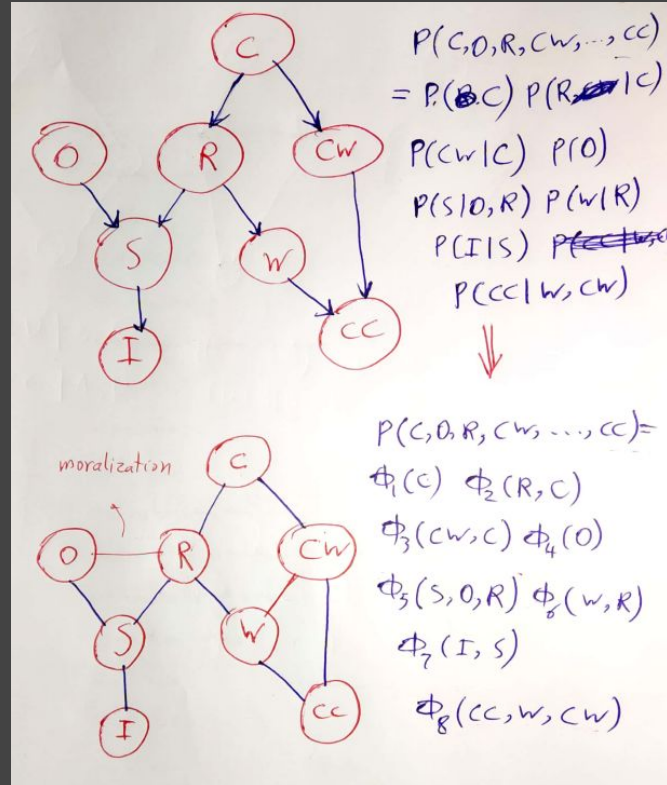 C
O
R
CW
S
W
I
CC
P(C,O,R,CW,...,CC)
= P(C) P(R|C)
P(CW|C) P(O)
P(S|O,R) P(W|R)
P(I|S)
P(CC|W,CW)
⇓
moralization
C
O
R
CW
S
W
I
CC
P(C,O,R,CW,...,CC)=
Φ₁(C) Φ₂(R,C)
Φ₃(CW,C) Φ₄(O)
Φ₅(S,O,R) Φ₆(W,R)
Φ₇(I,S)
Φ₈(CC,W,CW)